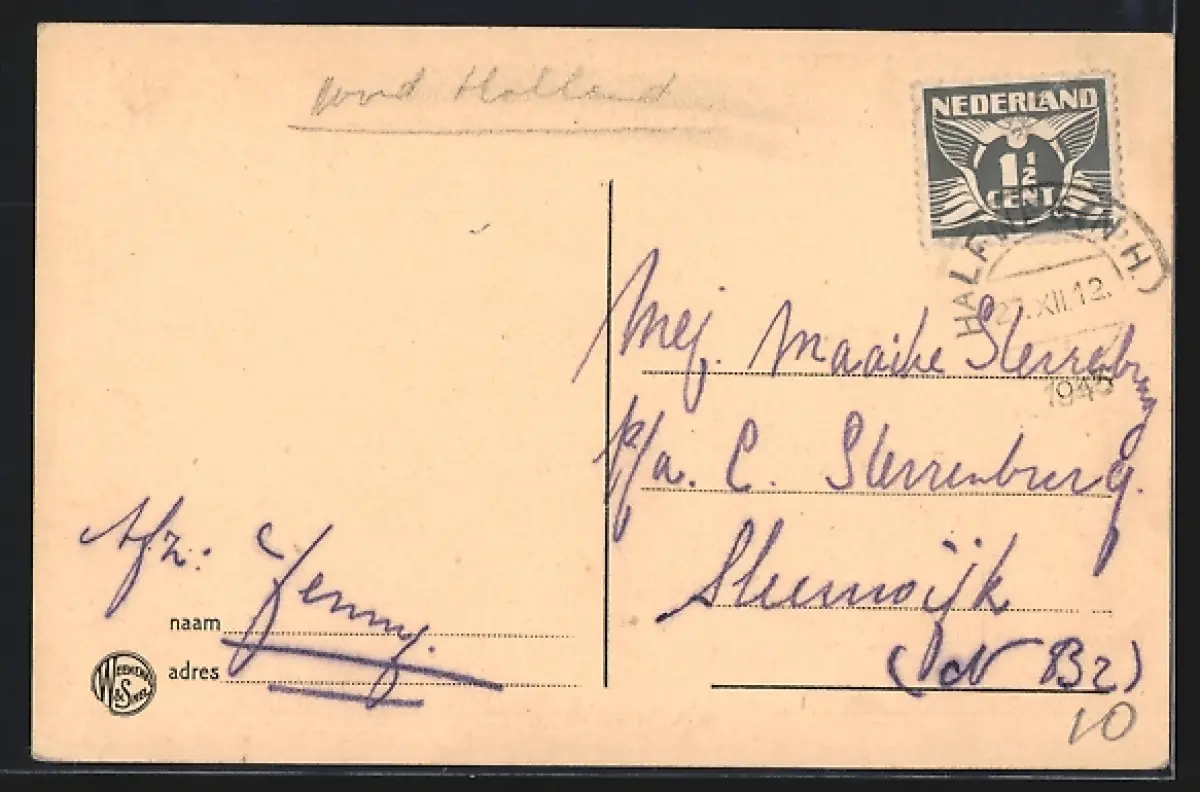 Noord Holland
NEDERLAND
1½
CENT
HALFWEG (N.H.)
27.XII.12.
1945
Mej. Maaike Sterrenburg
p/a. C. Sterrenburg.
Sleeuwijk
(N Bz)
10
Afz: Jenny.
naam
adres
WEENENK & SNEL